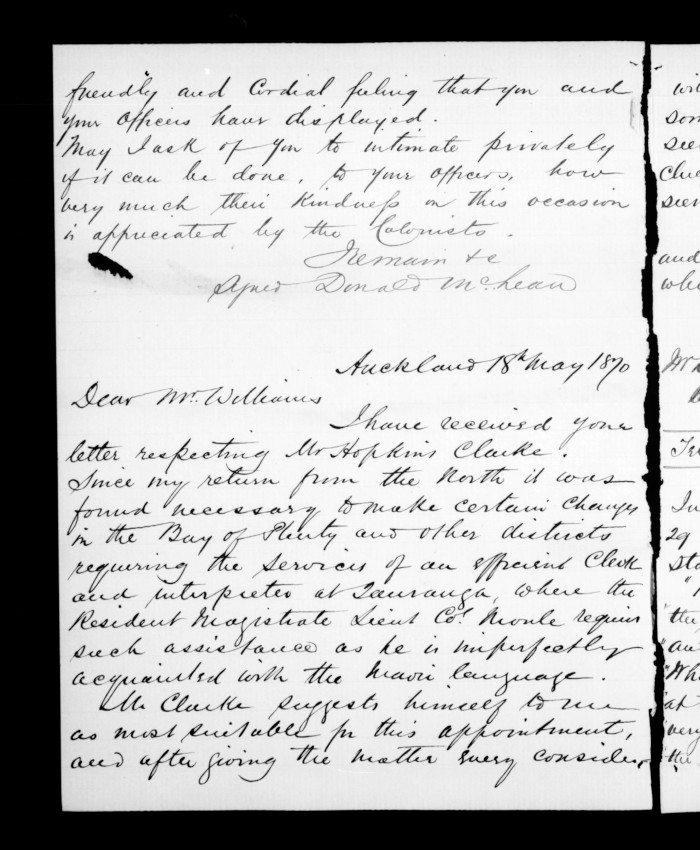 friendly and Cordial feeling that you and
your Officers have displayed.
May I ask of you to intimate privately
if it can be done, to your officers, how
very much their Kindness on this occasion
is appreciated by the Colonists.
I remain &c
Signed Donald McLean
Auckland 18th May 1870
Dear Mr. Williams
I have received your
letter respecting Mr Hopkins Clarke.
Since my return from the North it was
found necessary to make certain changes
in the Bay of Plenty and other districts
requiring the services of an efficient Clerk
and interpreter at Tauranga, where the
Resident Magistrate Lieut Col. Moule requires
such assistance as he is imperfectly
acquainted with the Maori language.
Mr Clarke suggests himself to me
as most suitable for this appointment,
and after giving the matter every consider
wit
som
see
Clue
seen
and
whi
Mr
In
29
Sta
"the
"au
"Whe
"at
"very
"the